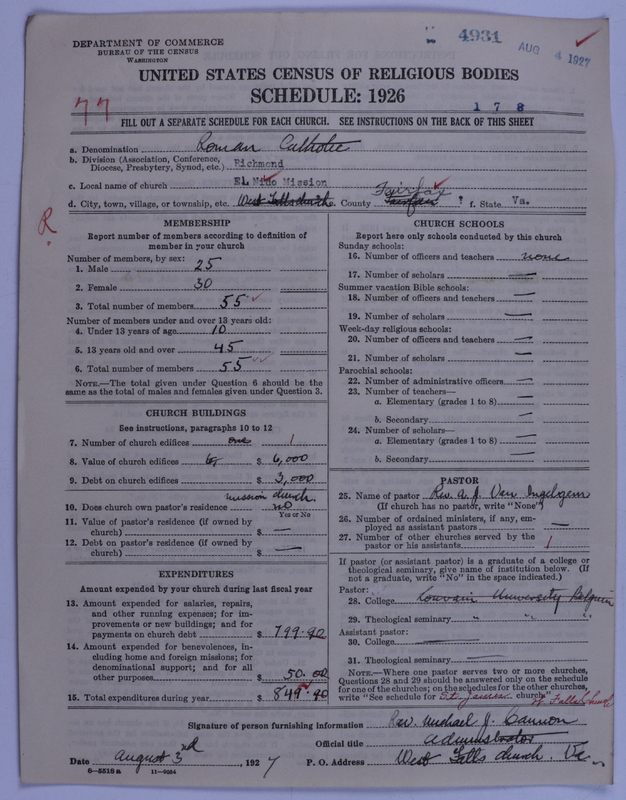 DEPARTMENT OF COMMERCE
BUREAU OF THE CENSUS
WASHINGTON
4931
AUG 4 1927
UNITED STATES CENSUS OF RELIGIOUS BODIES
SCHEDULE: 1926
77
1 7 8
FILL OUT A SEPARATE SCHEDULE FOR EACH CHURCH. SEE INSTRUCTIONS ON THE BACK OF THIS SHEET
a. Denomination Roman Catholic
b. Division (Association, Conference, Diocese, Presbytery, Synod, etc.) Richmond
c. Local name of church EL Nido Mission
d. City, town, village, or township, etc. West Falls church e. County Fairfax Fairfax f. State Va.
R
MEMBERSHIP
Report number of members according to definition of
member in your church
Number of members, by sex:
1. Male 25
2. Female 30
3. Total number of members 55
Number of members under and over 13 years old:
4. Under 13 years of age 10
5. 13 years old and over 45
6. Total number of members 55
NOTE.—The total given under Question 6 should be the
same as the total of males and females given under Question 3.
CHURCH BUILDINGS
See instructions, paragraphs 10 to 12
7. Number of church edifices one 1
8. Value of church edifices $ 6,000
9. Debt on church edifices $ 3,000
mission church.
10. Does church own pastor's residence? no
Yes or No
11. Value of pastor's residence (if owned by
church) $ —
12. Debt on pastor's residence (if owned by
church) $ —
EXPENDITURES
Amount expended by your church during last fiscal year
13. Amount expended for salaries, repairs,
and other running expenses; for im-
provements or new buildings; and for
payments on church debt $ 799.90
14. Amount expended for benevolences, in-
cluding home and foreign missions; for
denominational support; and for all
other purposes $ 50.00
15. Total expenditures during year $ 849.90
CHURCH SCHOOLS
Report here only schools conducted by this church
Sunday schools:
16. Number of officers and teachers none
17. Number of scholars —
Summer vacation Bible schools:
18. Number of officers and teachers —
19. Number of scholars —
Week-day religious schools:
20. Number of officers and teachers —
21. Number of scholars —
Parochial schools:
22. Number of administrative officers —
23. Number of teachers—
a. Elementary (grades 1 to 8) —
b. Secondary —
24. Number of scholars—
a. Elementary (grades 1 to 8) —
b. Secondary —
PASTOR
25. Name of pastor Rev. A. J. Van Ingelgem
(If church has no pastor, write "None")
26. Number of ordained ministers, if any, em-
ployed as assistant pastors —
27. Number of other churches served by the
pastor or his assistants 1
If pastor (or assistant pastor) is a graduate of a college or
theological seminary, give name of institution below. (If
not a graduate, write "No" in the space indicated.)
Pastor:
28. College Louvain University Belgium
29. Theological seminary " " "
Assistant pastor:
30. College —
31. Theological seminary —
NOTE.—Where one pastor serves two or more churches,
Questions 28 and 29 should be answered only on the schedule
for one of the churches; on the schedules for the other churches,
write "See schedule for St. James church" W. Falls Church
Signature of person furnishing information Rev. Michael J. Cannon
Official title Administrator
Date August 3rd, 1927 P. O. Address West Falls church. Va.
8—5518 a 11—9054